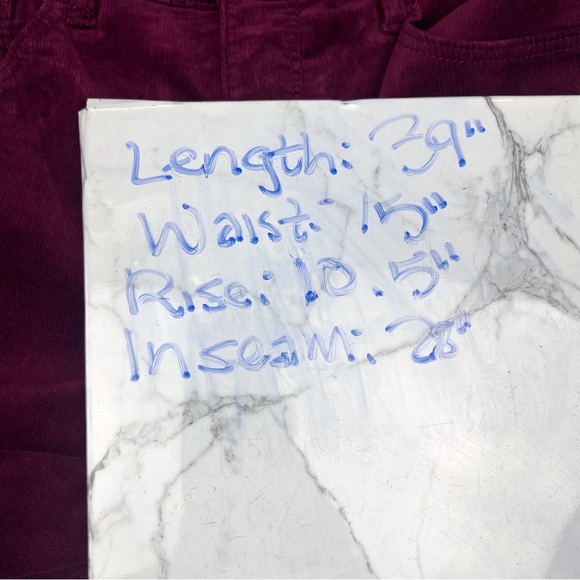 Length: 39"
Waist: 15"
Rise: 10.5"
Inseam: 28"